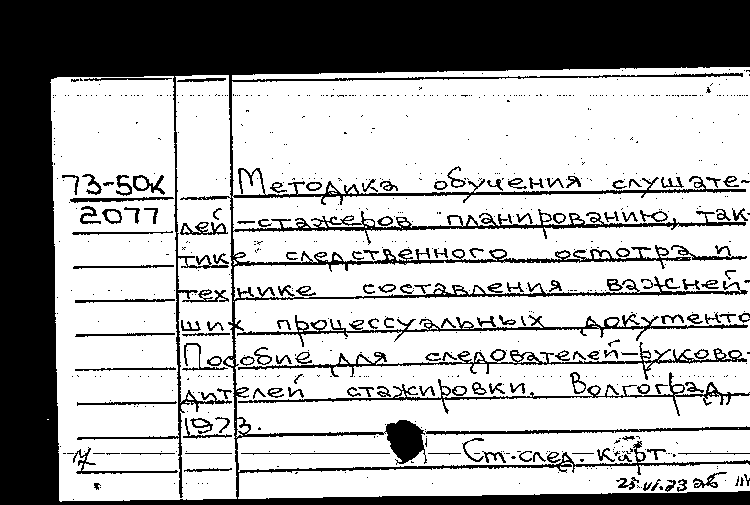 73-50к Методика обучения слушате-
2077 лей-стажеров планированию, так-
тике следственного осмотра и
технике составления важней-
ших процессуальных документо
Пособие для следователей-руково-
дителей стажировки. Волгоград,
1973.
Ст. след. карт.